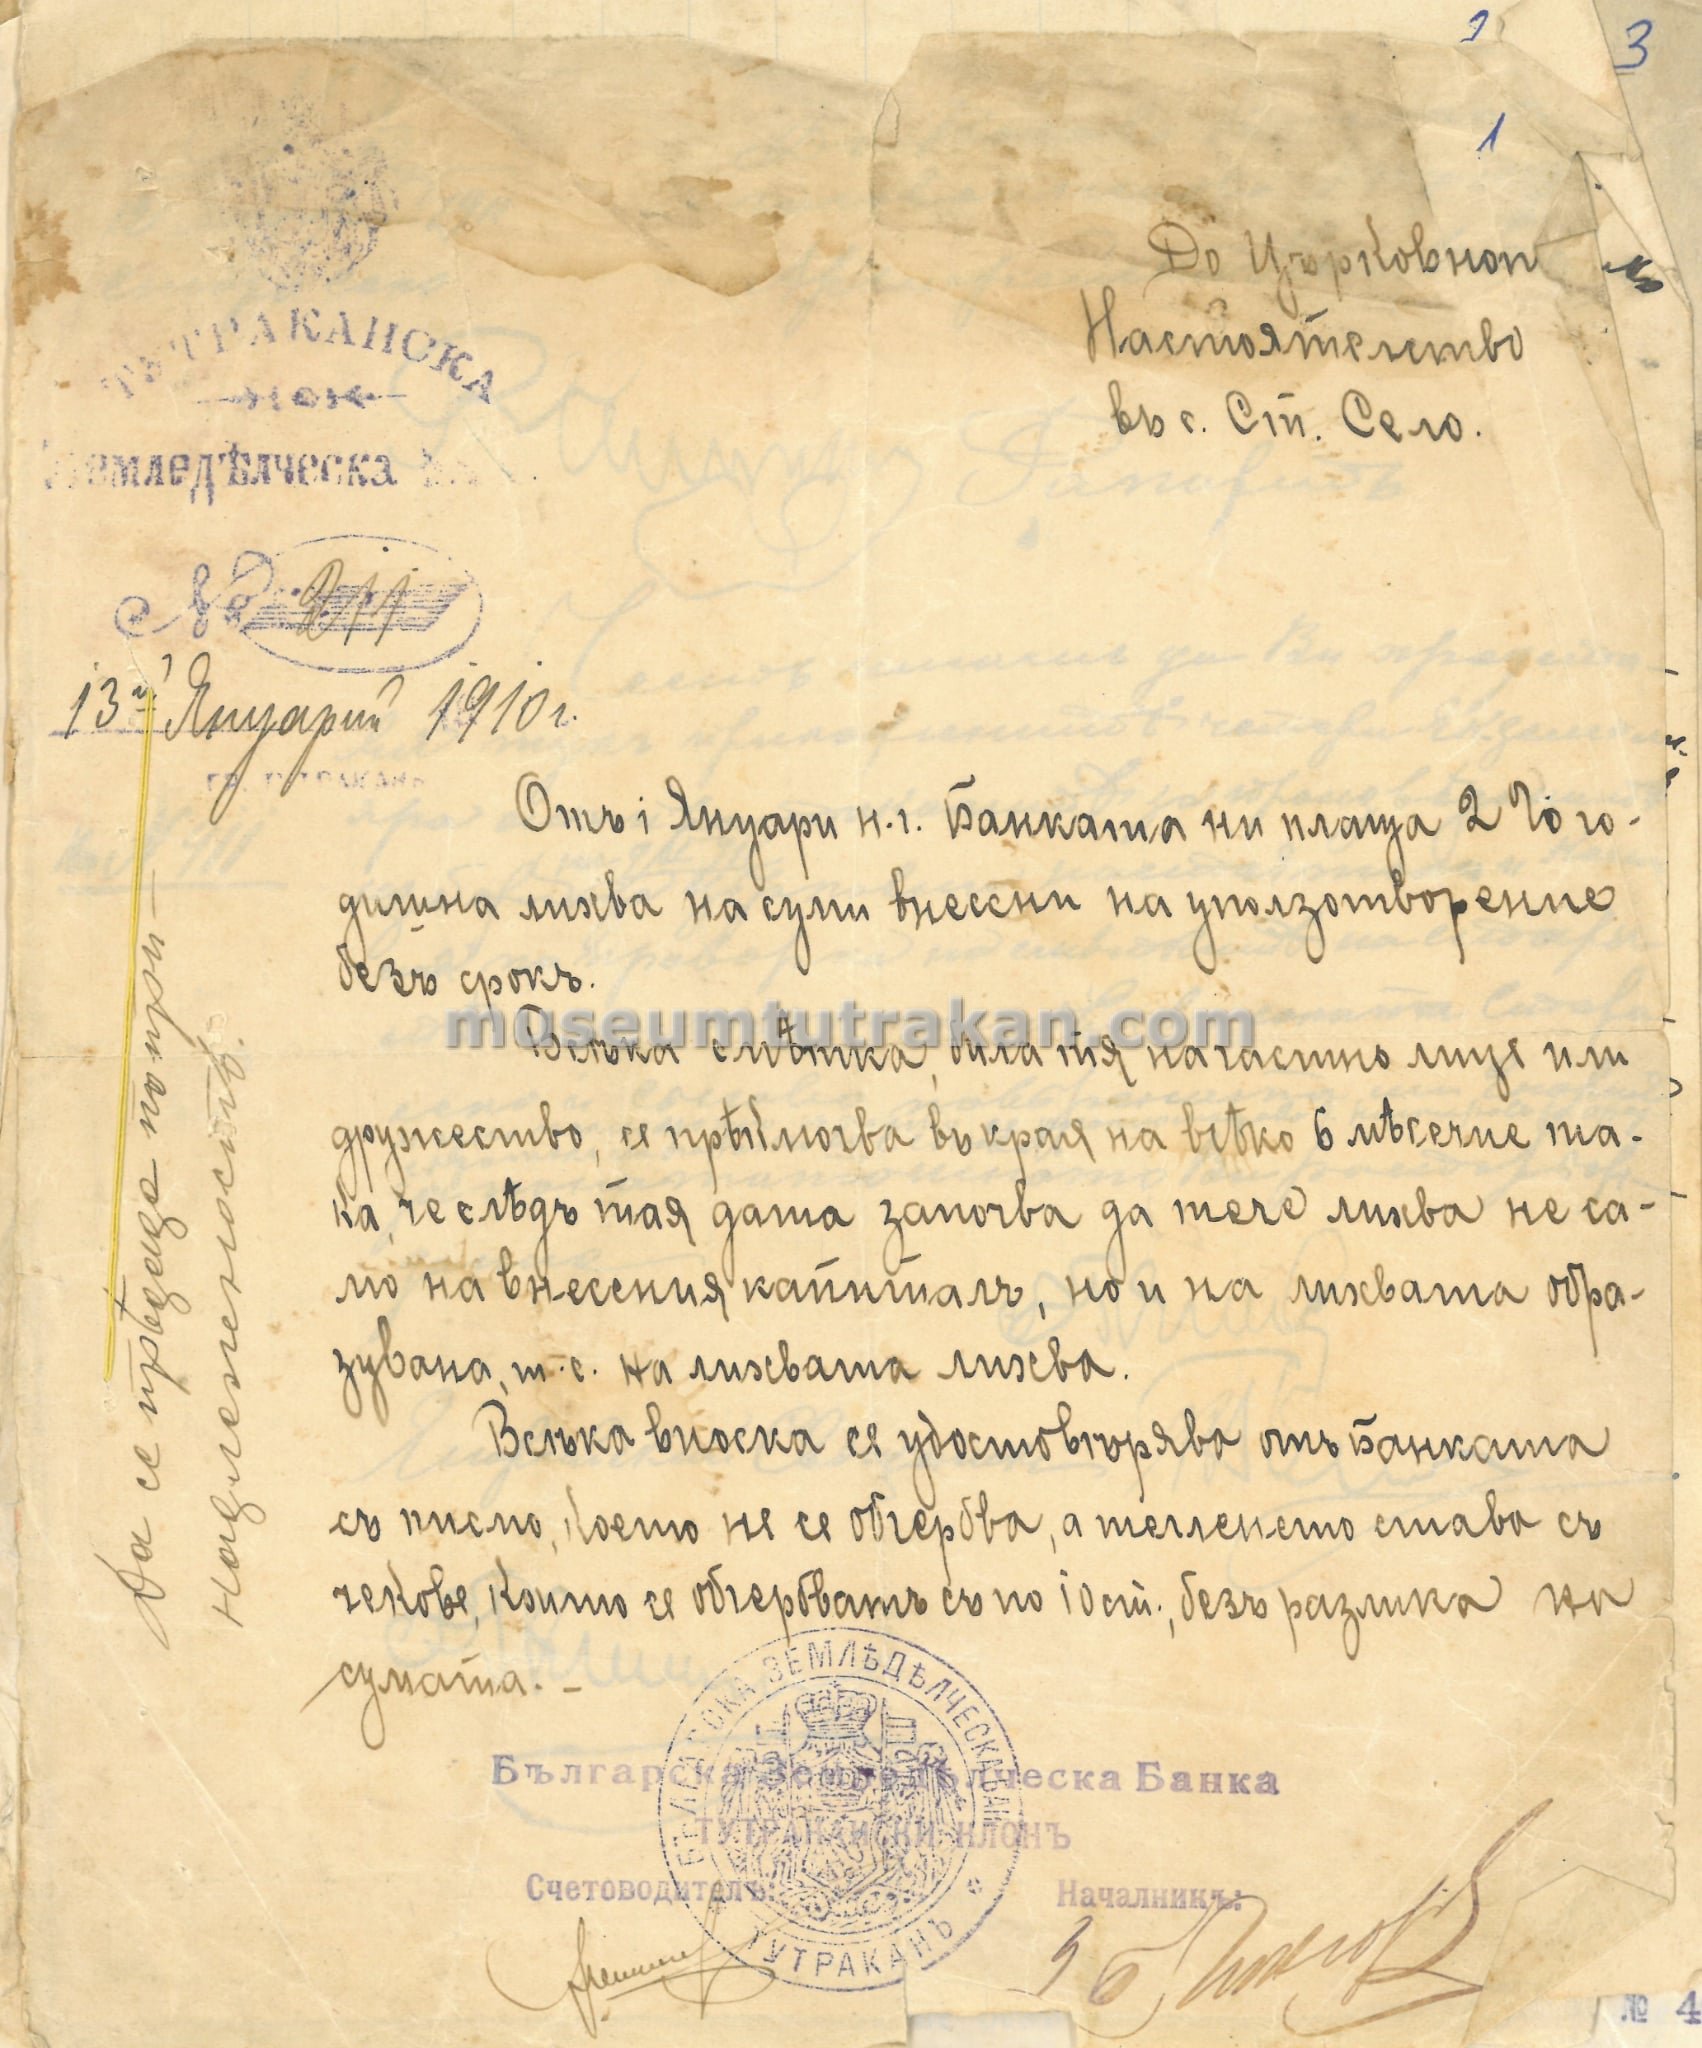 3
1
До Църковнот
Настоятелство
въ с. Ст. Село.
ТУТРАКАНСКА
Земледѣлческа
№ 211
13й Януарий 1910 г.
ГР. ТУТРАКАНЪ
Отъ 1 Януари н. г. Банката ни плаща 2% го-
дишна лихва на суми внесени на уползотворение
безъ срокъ.
Всѣка смѣтка, била тя на частно лице или
дружество, се прѣключва въ края на всѣко 6 мѣсечие та-
ка, че слѣдъ тая дата започва да тече лихва не са-
мо на внесения капиталъ, но и на лихвата обра-
зувана, т. е. на лихвата лихва.
Всѣка вноска се удостовѣрява отъ Банката
съ писмо, което не се обгербва, а тегленето става съ
чекове, които се обгербватъ съ по 10 ст., безъ разлика на
сумата. –
Да се прѣдаде по при-
надлежность.
museumtutrakan.com
БЪЛГАРСКА ЗЕМЛѢДѢЛЧЕСКА БАНКА
ТУТРАКАНЪ
Българска Земледѣлческа Банка
ТУТРАКАНСКИ КЛОНЪ
Счетоводитель:
Началникъ:
№ 4